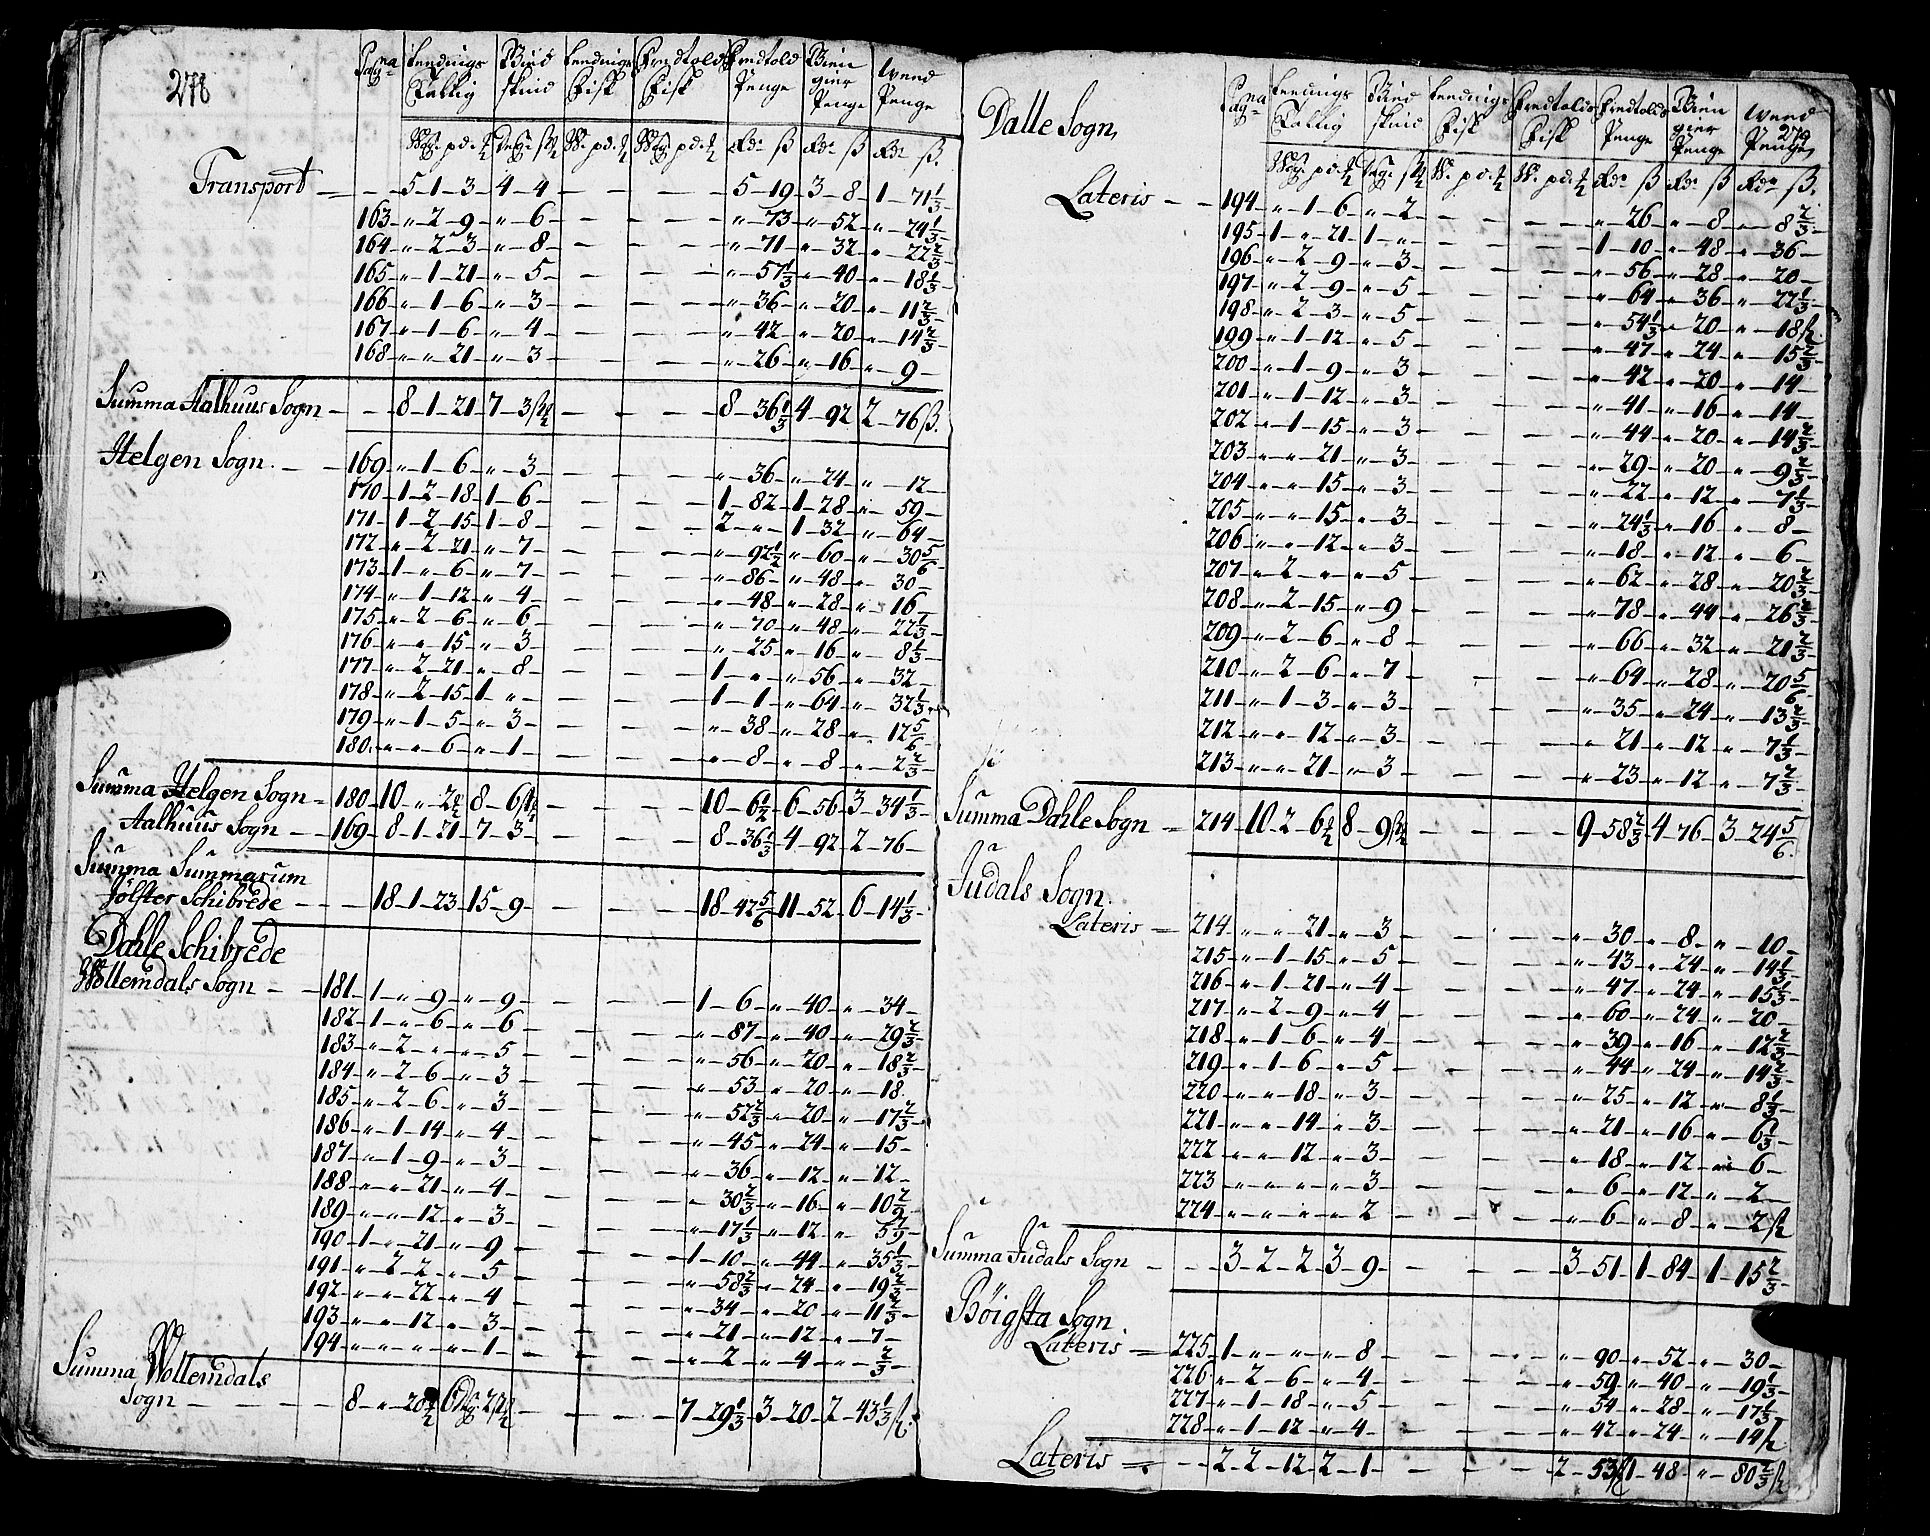 278
Pagna Lendings Tallig Biud skiud Lendings Fisk Fredtold Fisk Fredtold Penge Penge Penge
Transport - - 5-1-3- 4-4 - - - 5-19- 3-8- 1-71 1/3
163- "-2-9- "-6- - - "-73- "-52- "-24 1/3
164- "-2-3- "-8- - - "-71- "-32- "-22 2/3
165- "-1-21- "-5- - - "-57 1/3 "-40- "-18 1/3
166- "-1-6- "-3- - - "-36- "-20- "-11 2/3
167- "-1-6- "-4- - - "-42- "-20- "-14 2/3
168- "-"-21- "-3- - - "-26- "-16- "-9-
Summa Aalhuus Sogn - - 8-1-21 7-3 - - - 8-36 1/3 4-92 2-76 ß.
Helgen Sogn. - - 169- "-1-6- "-3- - - "-36- "-24- "-12-
170- 1-2-18- 1-6- - - 1-82- 1-28- "-59-
171- 1-2-15- 1-8- - - 2-"- 1-32- "-64-
172- "-2-21- "-7- - - "-92 1/2 "-60- "-30 5/6
173- 1-"-6- "-7- - - "-86- "-48- "-30
174- "-1-12- "-4- - - "-48- "-28- "-16-
175- "-2-6- "-6- - - "-70- "-48- "-22 1/3
176- "-"-15- "-3- - - "-25- "-16- "-8 1/3
177- "-2-21- "-8- - - 1-"- "-56- "-32-
178- "-2-15- 1-"- - - 1-1- "-64- "-32 1/3
179- "-1-5- "-3- - - "-38- "-28- "-12 5/6
180- "-"-6- "-1- - - "-8- "-8- "-2 2/3
Summa Helgen Sogn - 180- 10-"-2 8-6 - - - 10-6 1/2 6-56- 3-34 1/3
Aalhuus Sogn - - 169- 8-1-21- 7-3- - - 8-36 1/3 4-92- 2-76-
Summa Summarum
Jölster Schibrede - - - 18-1-23- 15-9- - - - 18-42 5/6 11-52- 6-14 1/3
Dahle Schibrede
Wollemdals Sogn - - 181- 1-"-9- "-9- - - - 1-6- "-40- "-34-
182- 1-"-6- "-6- - - "-87- "-40- "-29 2/3
183- "-2-"- "-5- - - "-56- "-20- "-18 2/3
184- "-2-6- "-3- - - "-53- "-20- "-18.
185- "-2-6- "-3- - - "-52 2/3 "-20- "-17 2/3
186- "-1-14- "-4- - - "-45- "-24- "-15-
187- "-1-9- "-3- - - "-36- "-12- "-12-
188- "-"-21- "-4- - - "-30 2/3 "-16- "-10 2/9
189- "-"-12- "-3- - - "-17 1/3 "-12- "-5 7/9
190- 1-"-21- "-9- - - 1-10- "-44- "-35 1/3
191- "-2-2- "-5- - - "-58 2/3 "-24- "-19 2/3
192- "-"-22- "-4- - - "-34- "-20- "-11 2/3
193- "-"-12- "-3- - - "-21- "-12- "-7-
194- "-"-"- "-1- - - "-2- "-4- "-2/3
Summa Wollemdals
Sogn - - - - 8-"-20 2/2 - - - 7-29 1/3 3-20- 2-43 1/3 ß.
Dalle Sogn,
Pagna Lendings Tallig Biud skiud Lendings Fisk Fredtolds Fisk Fredtolds Penge Penge Penge
279
Lateris - - 194- "-1-6- "-2- - - "-26- "-8- "-8 2/3
195- 1-"-21- 1-"- - - 1-10- "-48- "-36-
196- "-2-9- "-3- - - "-56- "-28- "-20-
197- "-2-9- "-5- - - "-64- "-36- "-22 1/3
198- "-2-3- "-5- - - "-54 1/3 "-20- "-18 ß.
199- "-1-12- "-5- - - "-47- "-24- "-15 2/3
200- "-1-9- "-3- - - "-42- "-20- "-14-
201- "-1-12- "-3- - - "-41- "-16- "-14-
202- "-1-15- "-3- - - "-44- "-20- "-14 2/3
203- "-"-21- "-3- - - "-29- "-20- "-9 2/3
204- "-"-15- "-3- - - "-22- "-12- "-7 1/3
205- "-"-15- "-3- - - "-24 1/3 "-16- "-8-
206- "-"-12- "-3- - - "-18- "-12- "-6-
207- "-2-"- "-5- - - "-62- "-28- "-20 2/3
208- "-2-15- "-9- - - "-78- "-44- "-26 2/3
209- "-2-6- "-8- - - "-66- "-32- "-21 2/3
210- "-2-6- "-7- - - "-64- "-28- "-20 5/6
211- "-1-3- "-3- - - "-35- "-24- "-13 2/3
212- "-"-12- "-3- - - "-21- "-12- "-7 1/3
213- "-"-21- "-3- - - "-23- "-12- "-7 2/3
Summa Dahle Sogn = 214- 10-2-6 8-9 - - - - 9-58 2/3 4-76- 3-24 5/6.
Judals Sogn.
Lateris - 214- "-"-21- "-3- - - "-30- "-8- "-10-
215- "-1-15- "-5- - - "-43- "-24- "-14 1/3
216- "-1-21- "-4- - - "-47- "-24- "-15 1/3
217- "-2-9- "-4- - - "-60- "-24- "-20-
218- "-1-6- "-4- - - "-39- "-16- "-12 2/3
219- "-1-6- "-5- - - "-44- "-24- "-14 2/3
220- "-"-18- "-3- - - "-25- "-12- "-8 1/3
221- "-"-14- "-3- - - "-21- "-16- "-6 1/3
222- "-"-12- "-3- - - "-18- "-12- "-6-
223- "-"-"- "-3- - - "-6- "-12- "-2-
224- "-"-"- "-2- - - "-6- "-8- "-2 ß
Summa Judals Sogn - - 3-2-2- 3-9- - - - 3-51- 1-84- 1-15 2/3
Böigsta Sogn.
Lateris = 225- 1-"-"- "-8- - - "-90- "-52- "-30-
226- "-2-6- "-4- - - "-59- "-40- "-19 1/3
227- "-1-18- "-5- - - "-54- "-28- "-17 1/3
228- "-1-12- "-4- - - "-42- "-24- "-14 ß
Lateris = - - 2-2-12- 2-1- - - - 2-53 1-48- "-80 2/3 ß